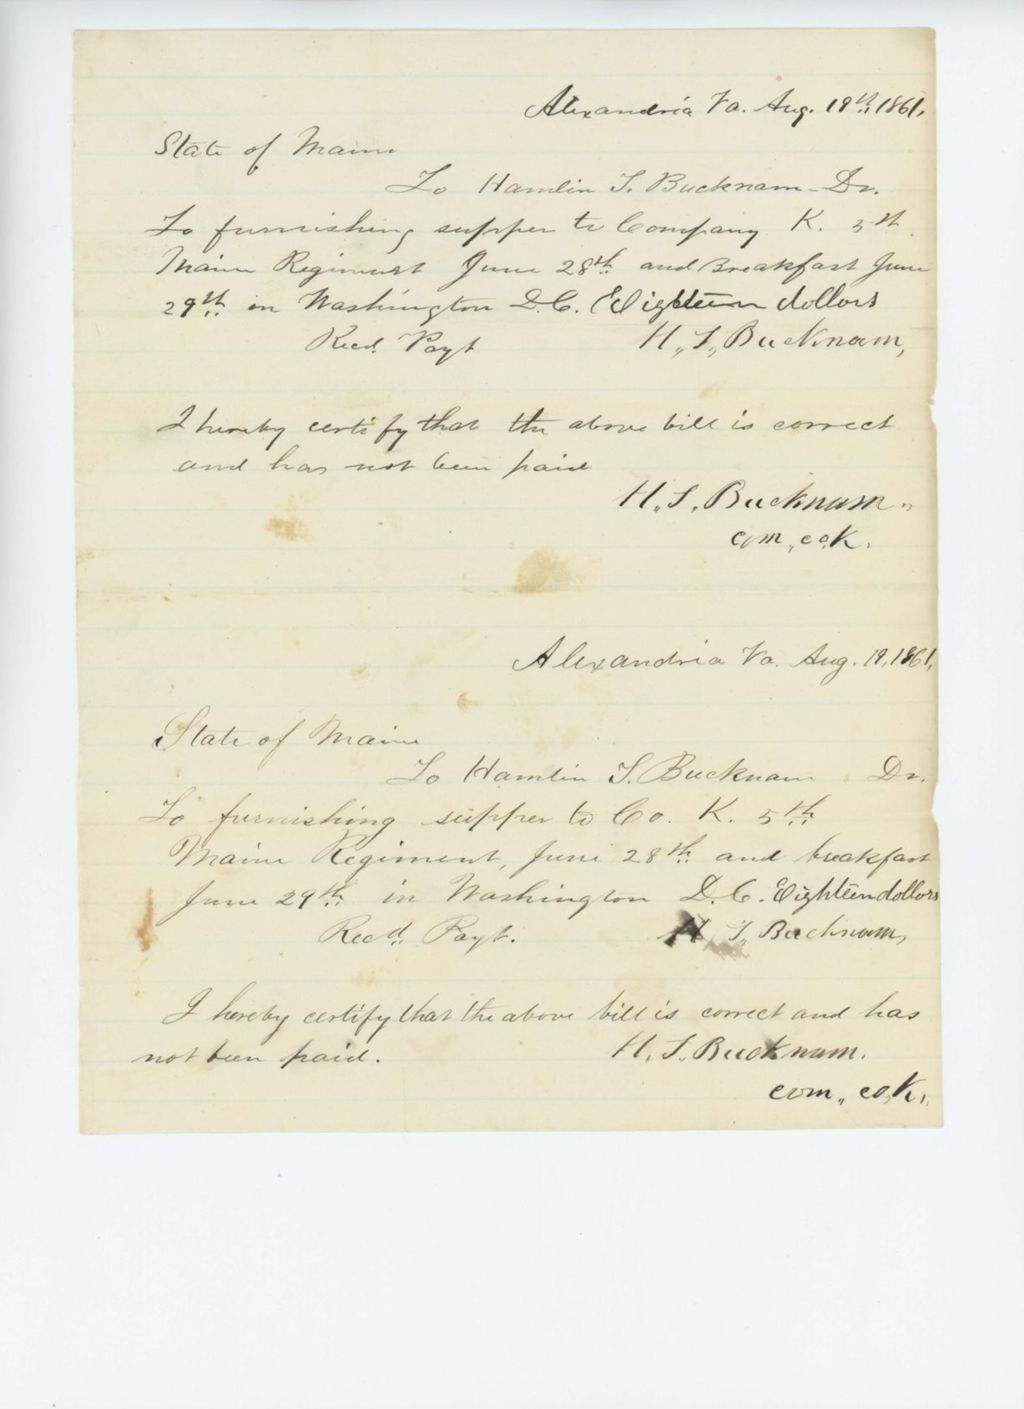 Alexandria Va. Aug. 19th, 1861.
State of Maine
To Hamlin T. Bucknam - Dr.
To furnishing supper to Company K. 5th
Maine Regiment June 28th and Breakfast June
29th in Washington D.C. Eighteen dollars
Recd. Payt H,, T,, Bucknam,
I hereby certify that the above bill is correct
and has not been paid
H. T. Bucknam.
com, co. K.
Alexandria Va. Aug. 19, 1861.
State of Maine
To Hamlin T. Bucknam Dr.
To furnishing supper to Co. K. 5th
Maine Regiment, June 28th and breakfast
June 29th in Washington D.C. Eighteen dollars
Recd. Payt. H T,, Bucknam,
I hereby certify that the above bill is correct and has
not been paid. H. T. Bucknam.
com,, co. K.